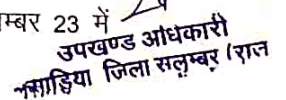 म्बर 23 में
उपखण्ड अधिकारी
जिला सलूम्बर (राज